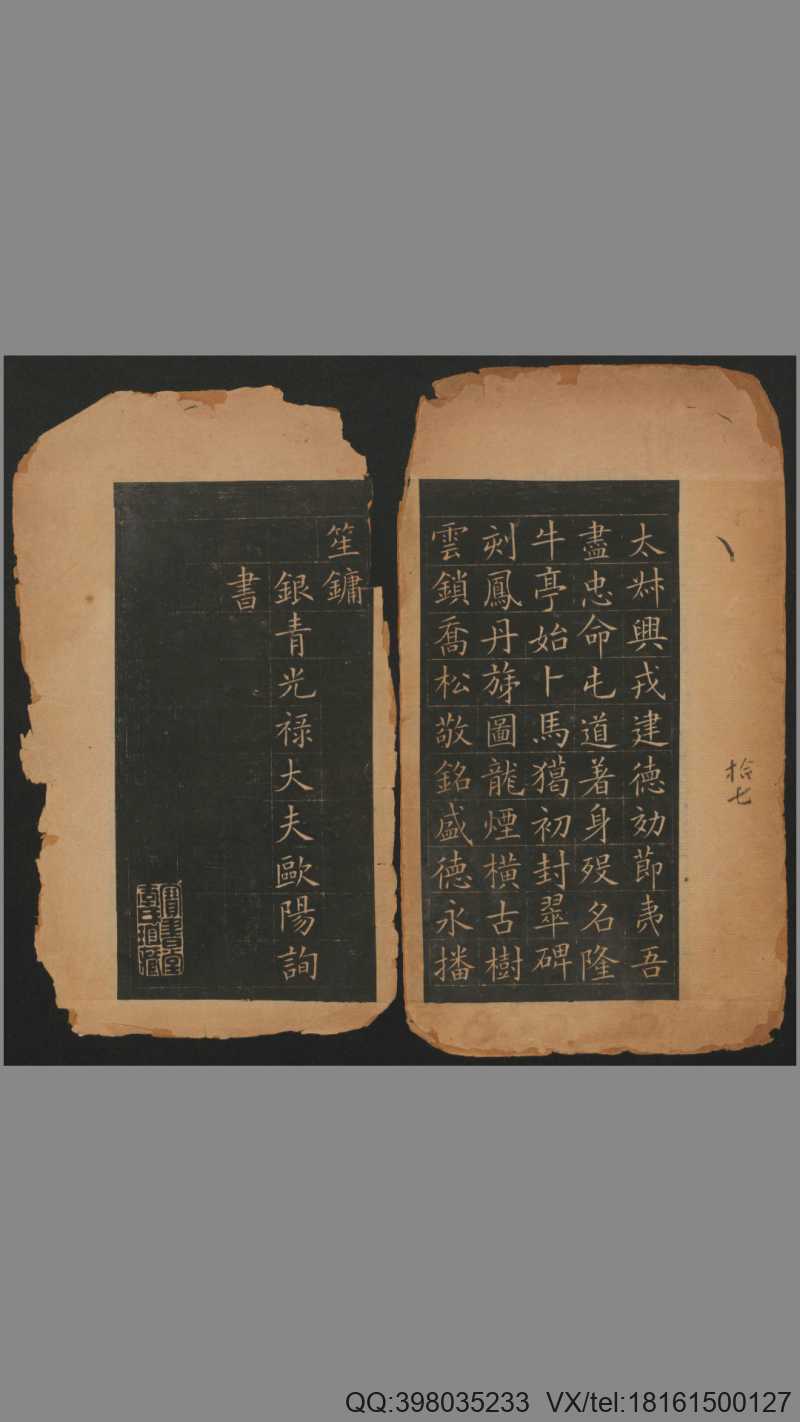 太𡊮興戎建德効節夷吾
盡忠命屯道著身殁名隆
牛亭始卜馬獦初封翠碑
刻鳳丹旐圖龍煙横古樹
雲鎖喬松敬銘盛德永播
笙鏞
銀青光禄大夫歐陽詢
書
拾七
QQ:398035233 VX/tel:18161500127